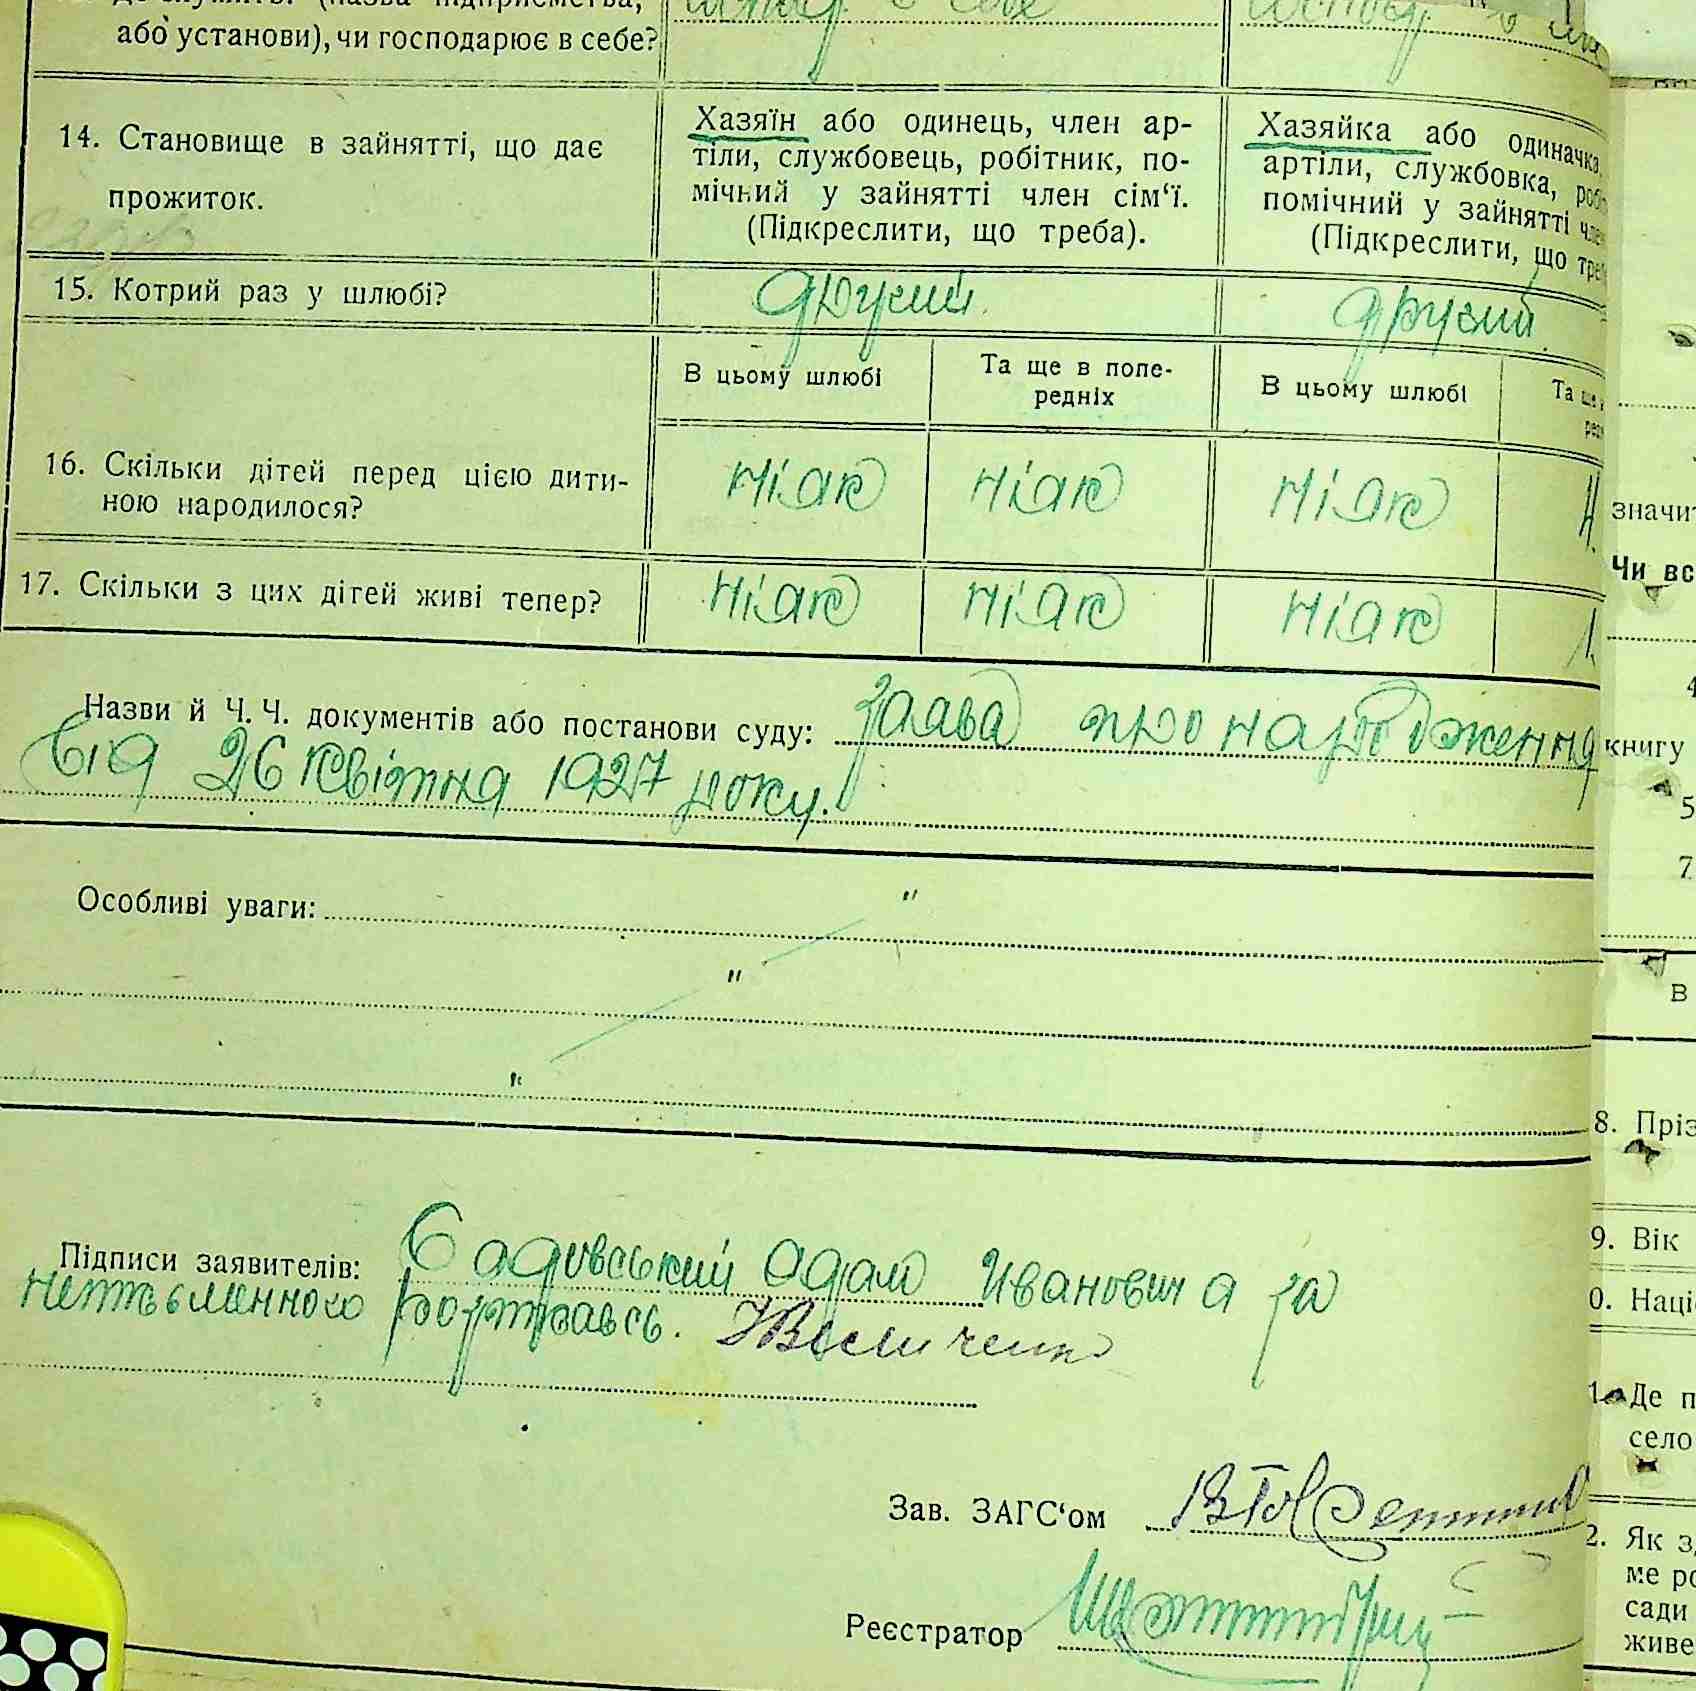 де служить? (назва підприємства,
або установи), чи господарює в себе?
14. Становище в зайнятті, що дає
прожиток.
Хазяїн або одинець, член ар-
тіли, службовець, робітник, по-
мічний у зайнятті член сім‘ї.
(Підкреслити, що треба).
Хазяйка або одиначка,
артіли, службовка, робіт
помічний у зайнятті член
(Підкреслити, що треба
15. Котрий раз у шлюбі?
другий
другий
В цьому шлюбі
Та ще в попе-
редніх
В цьому шлюбі
Та ще
16. Скільки дітей перед цією дити-
ною народилося?
ніяк ніяк ніяк н
17. Скільки з цих дітей живі тепер?
ніяк ніяк ніяк
Назви й Ч. Ч. документів або постанови суду: заява про народження
від 26 квітня 1927 року.
Особливі уваги: "
"
"
Підписи заявителів: Садовський Адам Иванович а за
неписьменного розписавсь. Величенко
Зав. ЗАГС‘ом
Реєстратор
значит
Чи вс
книгу
5
7
в
8. Пріз
9. Вік
0. Наці
1. Де п
село
2. Як з
ме ро
сади
живе